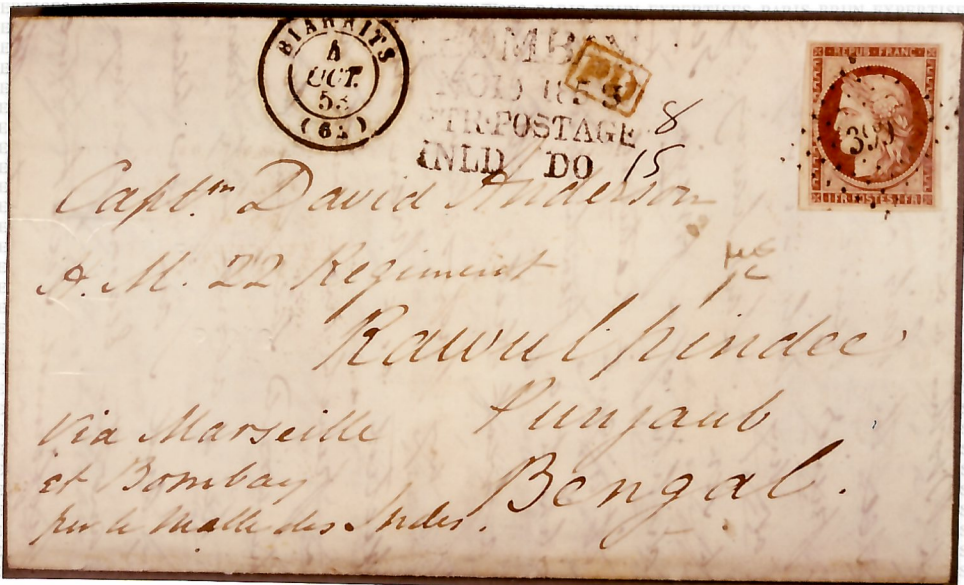 BIARRITS
4
OCT.
53
(64)
BOMBAY
STR. POSTAGE 8
INLD DO 15
REPUB. FRANC.
1FR. POSTES 1FR
Capt.n David Anderson
H. M. 22 Regiment
Rawulpindee
Punjaub
Bengal.
Via Marseille
et Bombay
per la Malle des Indes.